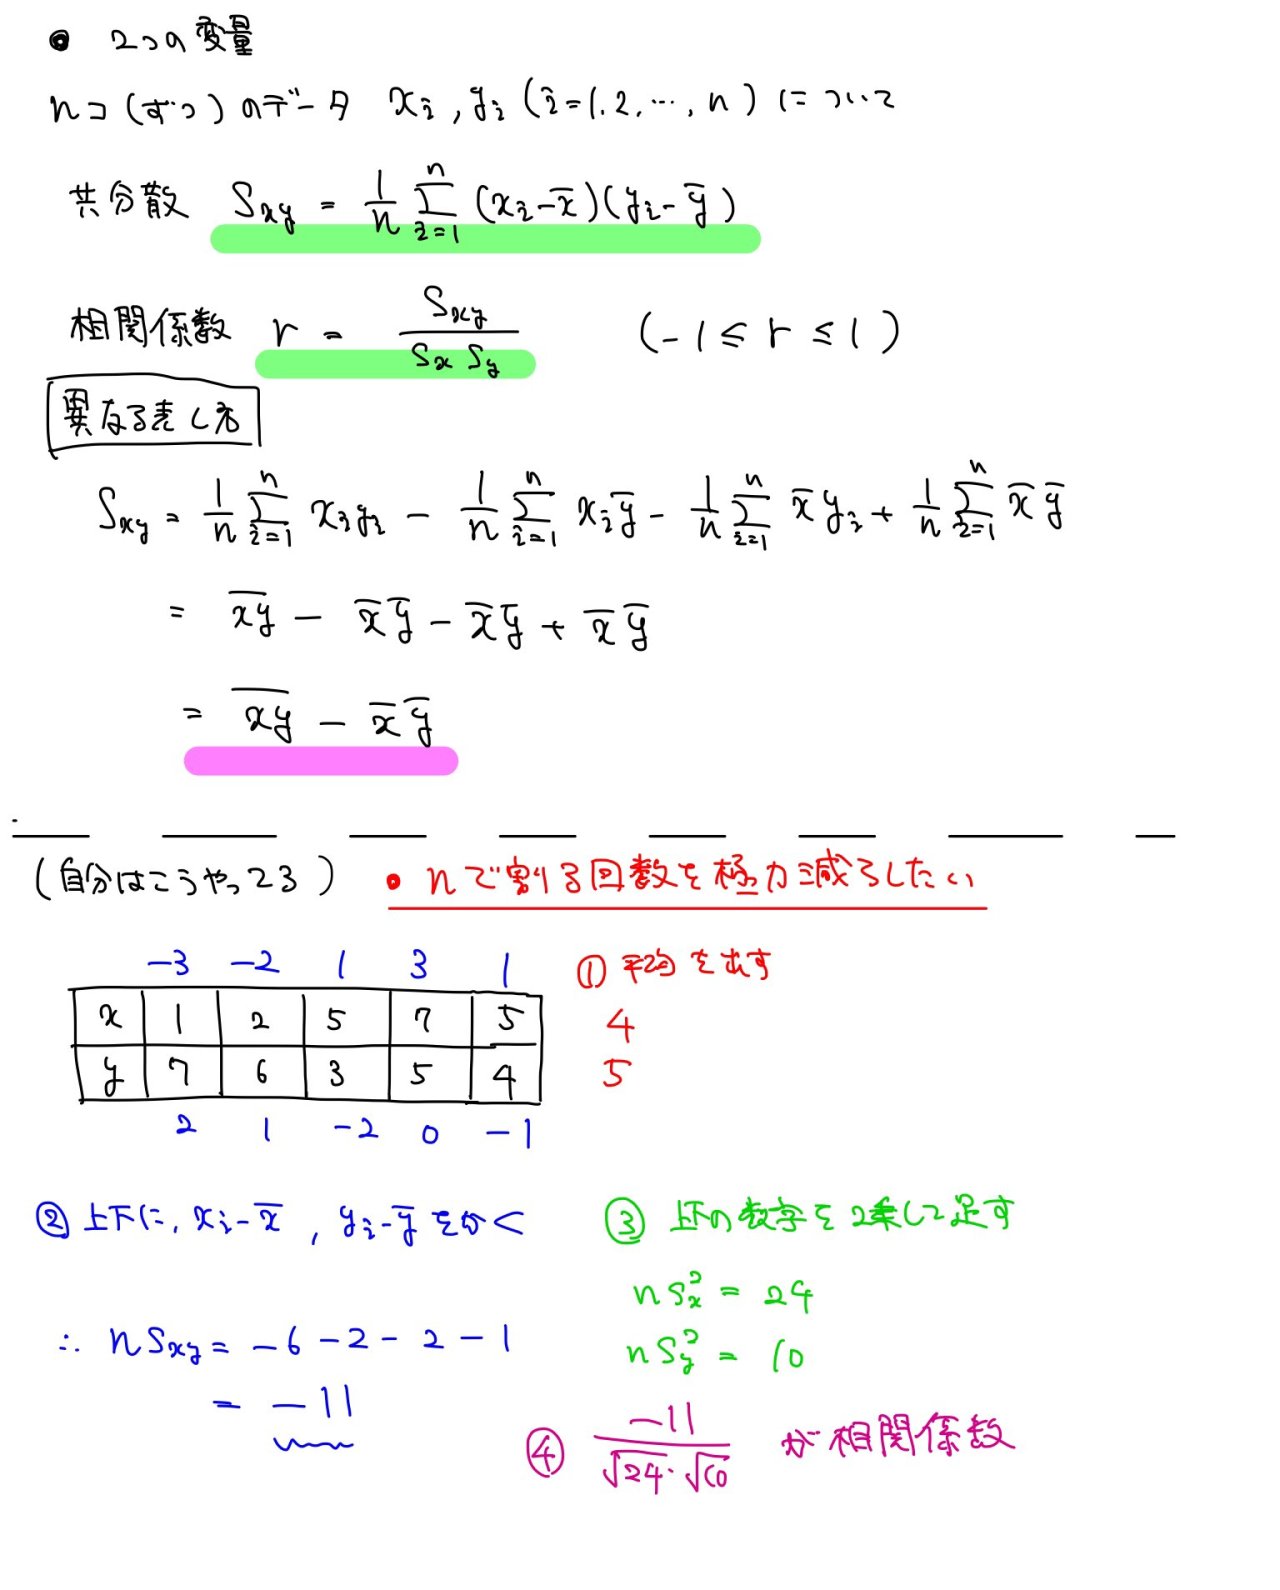 ● 2つの変量
nコ(ずつ)のデータ xᵢ, yᵢ (i=1,2,…,n) について
共分散 Sxy = 1/n Σ[i=1→n] (xᵢ-x̄)(yᵢ-ȳ)
相関係数 r = Sxy / (Sx Sy) (-1 ≤ r ≤ 1)
異なる表し方
Sxy = 1/n Σ[i=1→n] xᵢyᵢ - 1/n Σ[i=1→n] xᵢȳ - 1/n Σ[i=1→n] x̄yᵢ + 1/n Σ[i=1→n] x̄ȳ
= \overline{xy} - x̄ȳ - x̄ȳ + x̄ȳ
= \overline{xy} - x̄ȳ
(自分はこうやってる) ● nで割る回数を極力減らしたい
-3 -2 1 3 1
x 1 2 5 7 5
y 7 6 3 5 4
2 1 -2 0 -1
① 平均を出す
4
5
② 上下に, xᵢ-x̄, yᵢ-ȳをかく
∴ nSxy = -6-2-2-1
= -11
③ 上下の数字を2乗して足す
nSx² = 24
nSy² = 10
④ -11 / (√24・√10) が相関係数